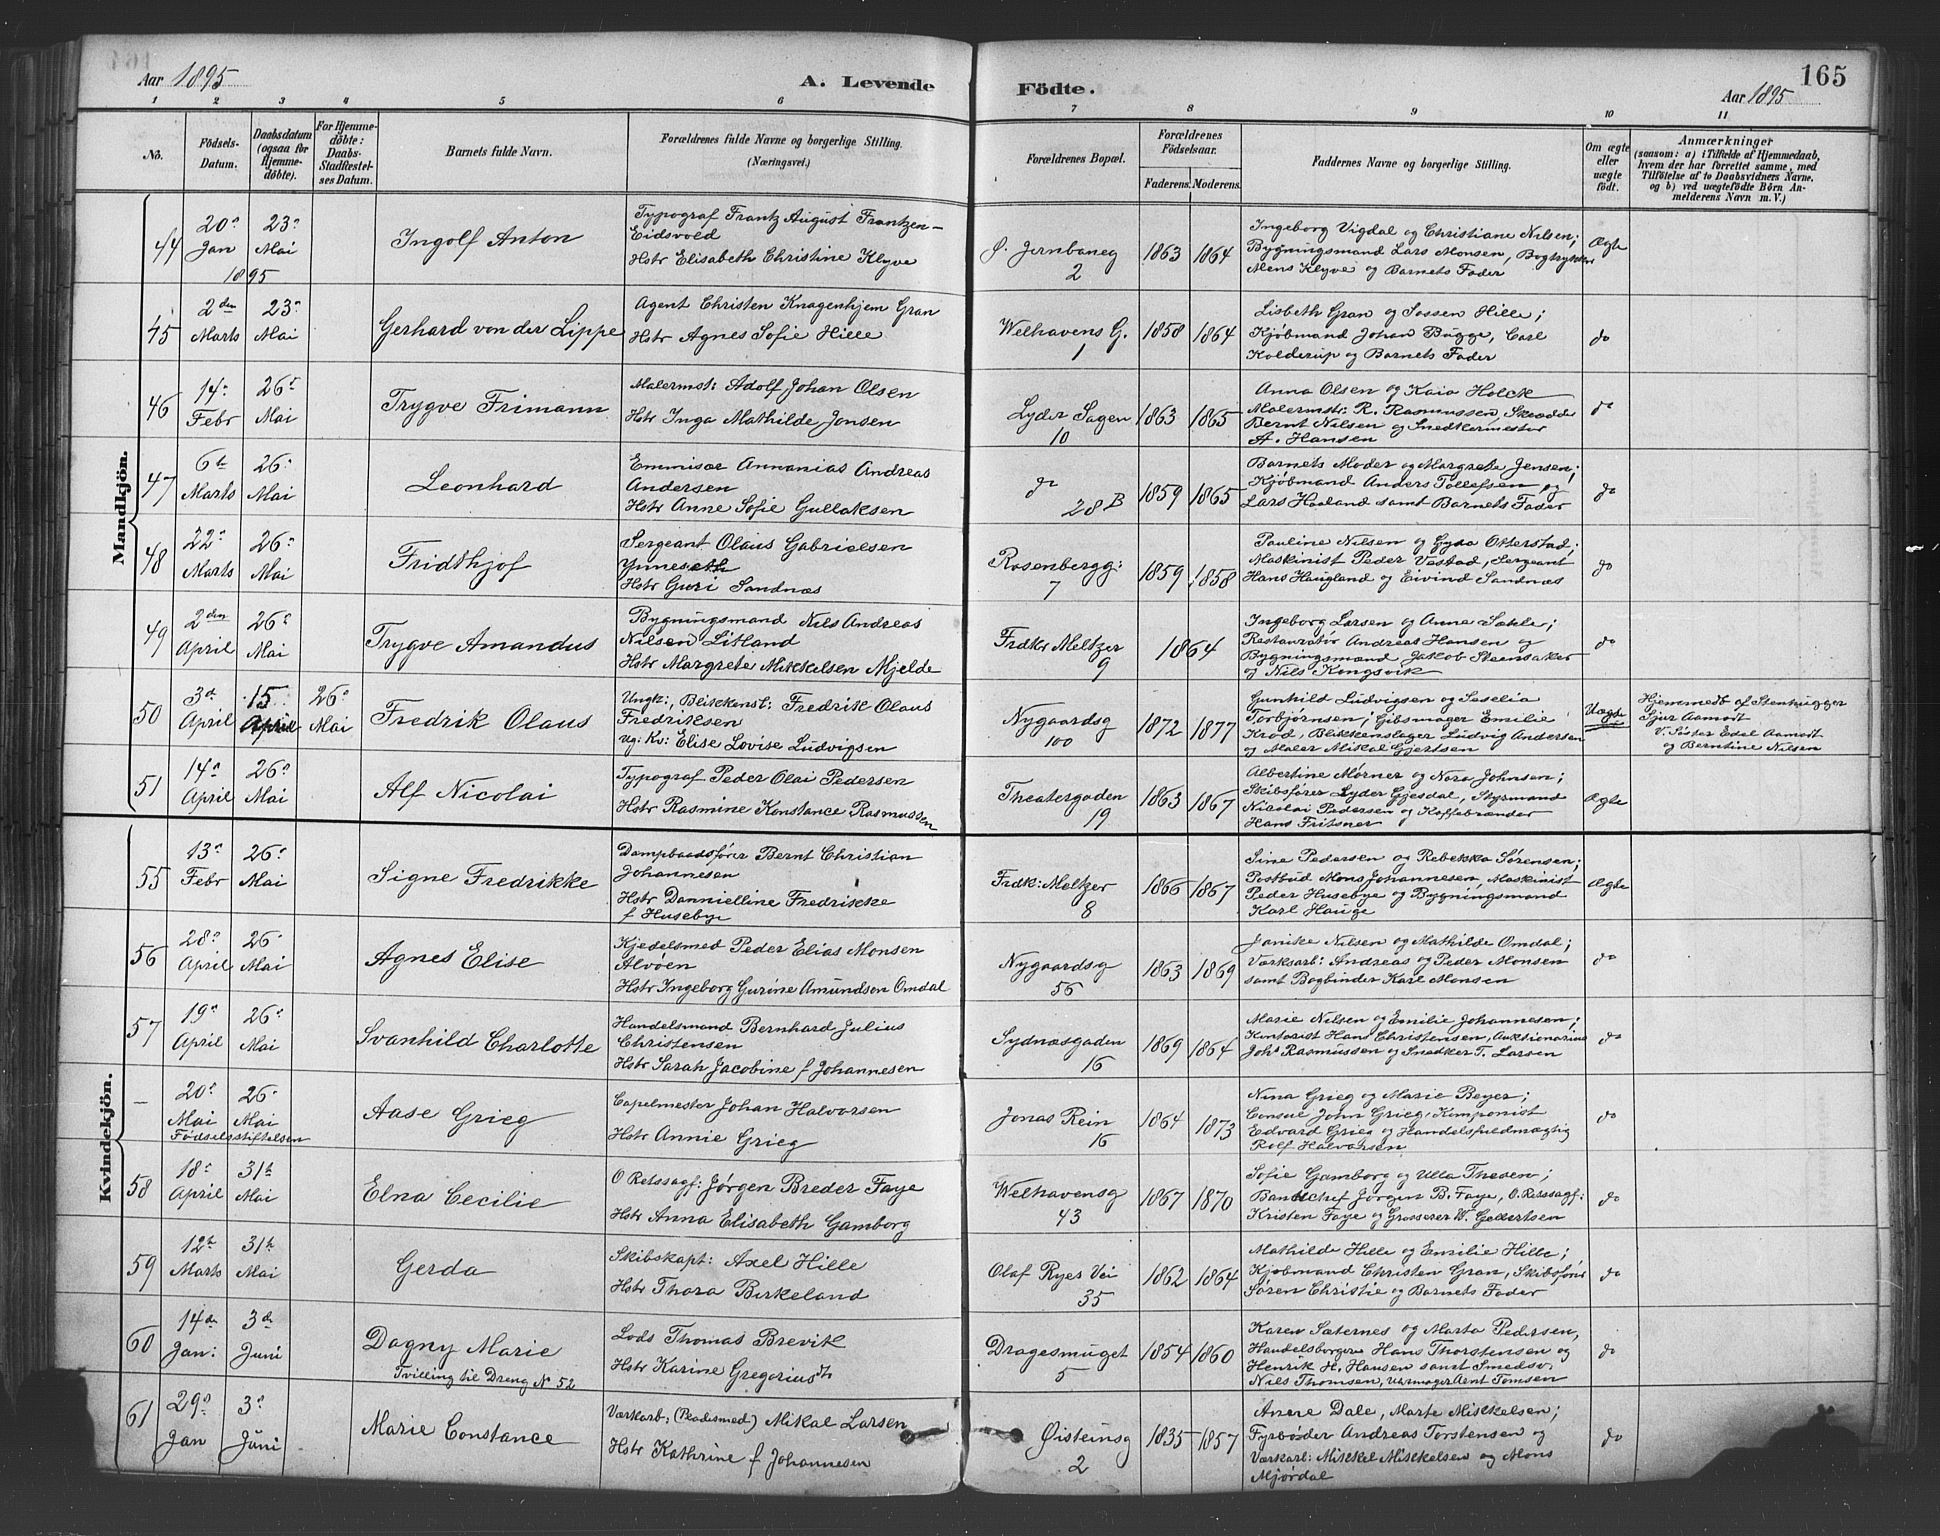 Aar 1895
A. Levende
Födte.
165
Aar 1895
1 2 3 4 5 6 7 8 9 10 11
No.
Födsels-
Datum.
Daabsdatum
(ogsaa for
Hjemme-
döbte).
For Hjemme-
döbte:
Daabs-
Stadfæstel-
ses Datum.
Barnets fulde Navn.
Forældrenes fulde Navne og borgerlige Stilling.
(Næringsvei.)
Forældrenes Bopæl.
Forældrenes
Födselsaar.
Faderens. Moderens.
Faddernes Navne og borgerlige Stilling.
Om ægte
eller
uægte
födt.
Anmærkninger
(saasom: a) i Tilfælde af Hjemmedaab,
hvem der har forrettet samme, med
Tilföielse af to Daabsvidners Navne,
og b) ved uægtefödte Börn An-
melderens Navn m. V.)
Mandkjön.
44
20de
Jan
1895
23de
Mai
Ingolf Anton
Typograf Frantz August Frantzen-
Eidsvold
Hstr Elisabeth Christine Klyve
Ø. Jernbaneg
2
1863 1864
Ingeborg Vigdal og Christiane Nilsen;
Bygningsmand Lars Monsen, Bogtrykker
Mens Klyve og Barnets Fader
Ægte
45
2den
Marts
23de
Mai
Gerhard von der Lippe
Agent Christen Knagenhjem Gran
Hstr Agnes Sofie Hille
Welhavens G.
1
1858 1864
Lisbeth Gran og Sossen Hille;
Kjøbmand Johan Bugge, Carl
Kolderup og Barnets Fader
do
46
14de
Febr
26de
Mai
Trygve Frimann
Malermst: Adolf Johan Olsen
Hstr Inga Mathilde Jonsen
Lyder Sagen
10
1863 1865
Anna Olsen og Kaia Holck
Malermstr: R. Rasmussen, Skrædder
Bernt Nilsen og Snedkermester
A. Hansen
do
47
6te
Marts
26de
Mai
Leonhard
Emmisær Annanias Andreas
Andersen
Hstr Anne Sofie Gullaksen
do
28 B
1859 1865
Barnets Moder og Margrete Jensen;
Kjøbmand Anders Tollefsen og
Lars Haaland samt Barnets Fader
do
48
22de
Marts
26de
Mai
Fridthjof
Sergeant Olaus Gabrielsen
Ynneseth
Hstr Guri Sandnæs
Rosenbergg:
7
1859 1858
Pauline Nilsen og Gyda Otterstad;
Maskinist Peder Vestad, Sergeant
Hans Haugland og Eivind Sandnæs
do
49
2den
April
26de
Mai
Trygve Amandus
Bygningsmand Nils Andreas
Nilsen Litland
Hstr Margrete Mikkelsen Mjelde
Frdkr Meltzer
9
1864
Ingeborg Larsen og Anna Sæhle;
Restauratør Andreas Hansen og
Bygningsmænd Jakob Steensaker
og Nils Kongsvik
do
50
3de
April
15
April
26de
Mai
Fredrik Olaus
Ungk:, Blikkenst: Fredrik Olaus
Fredriksen
ug: Kv: Elise Lovise Ludvigsen
Nygaardsg
100
1872 1877
Gunhild Ludvigsen og Seselia
Torbjørnsen; Gibsmager Emilie
Krod, Blikkenslager Ludvig Andersen
og Maler Mikal Gjertsen
Uægte
Hjemmedb af Stenhugger
Sjur Aamodt
V. Søster Edel Aamodt
og Berntine Nilsen
51
14de
April
26de
Mai
Alf Nicolai
Typograf Peder Olai Pedersen
Hstr Rasmine Konstance Rasmussen
Theatergaden
19
1863 1867
Albertine Mørner og Nora Johnsen;
Skibsfører Lyder Gjesdal, Styrmand
Nicolai Pedersen og Kaffebrænder
Hans Fritsner
Ægte
Kvindekjön.
55
13de
Febr
26de
Mai
Signe Fredrikke
Dampbaadsfører Bernt Christian
Johannesen
Hstr Dannielline Fredrikke
f Husebye
Frdk: Meltzer
8
1866 1867
Sine Pedersen og Rebekka Sørensen;
Postbud Mons Johannesen, Maskinist
Peder Husebye og Bygningsmand
Karl Hauge
Ægte
56
28de
April
26de
Mai
Agnes Elise
Kjedelsmed Peder Elias Monsen
Alvøen
Hstr Ingeborg Gurine Amundsen Omdal
Nygaardsg
56
1863 1869
Janike Nilsen og Mathilde Omdal;
Værksarb: Andreas og Peder Monsen
samt Bogbinder Karl Monsen
do
57
19de
April
26de
Mai
Svanhild Charlotte
Handelsmand Bernhard Julius
Christensen
Hstr Sarah Jacobine f Johannesen
Sydnæsgaden
16
1869 1864
Marie Nilsen og Emilie Johannesen;
Kontorist Hans Christensen, Auktionarius
Johs Rasmussen og Snedker T. Larsen
do
–
20de
Mai
26de
Mai
Födselsstiftelsen
Aase Grieg
Capelmester Johan Halvorsen
Hstr Annie Grieg
Jonas Rein
16
1864 1873
Nina Grieg og Marie Beyer;
Consul John Grieg, Komponist
Edvard Grieg og Handelsfuldmægtig
Rolf Halvorsen
do
58
18de
April
31te
Mai
Elna Cecilie
O Retssagf: Jørgen Breder Faye
Hstr Anna Elisabeth Gamborg
Welhavensg
43
1867 1870
Sofie Gamborg og Ulla Thesen;
Bankchef Jørgen B. Faye, O. Retssagf:
Kristen Faye og Grosserer W. Gellertsen
do
59
12te
Marts
31te
Mai
Gerda
Skibskapt: Axel Hille
Hstr Thora Birkeland
Olaf Ryes Vei
35
1862 1864
Mathilde Hille og Emilie Hille;
Kjøbmand Christen Gran, Skibsfører
Søren Christie og Barnets Fader
do
60
14de
Jan:
3de
Juni
Dagny Marie
Tvilling til Dreng N 52
Lods Thomas Brevik
Hstr Karine Gregoriusdt
Dragesmuget
5
1854 1860
Karen Sæternes og Marta Pedersen,
Handelsborger Hans Thorstensen og
Henrik H. Hansen samt Smedsv.
Nils Thomsen, Uhrmager Arnt Tomsen
do
61
29de
Jan
3de
Juni
Marie Constance
Værkarb: (Pladesmed) Mikal Larsen
Hstr Kathrine f Johannesen
Øisteinsg
2
1835 1857
Anne Dale, Marte Mikkelsen;
Fyrbøder Andreas Torstensen og
Værkarb: Mikkel Mikkelsen og Mons
Mjørdal
do